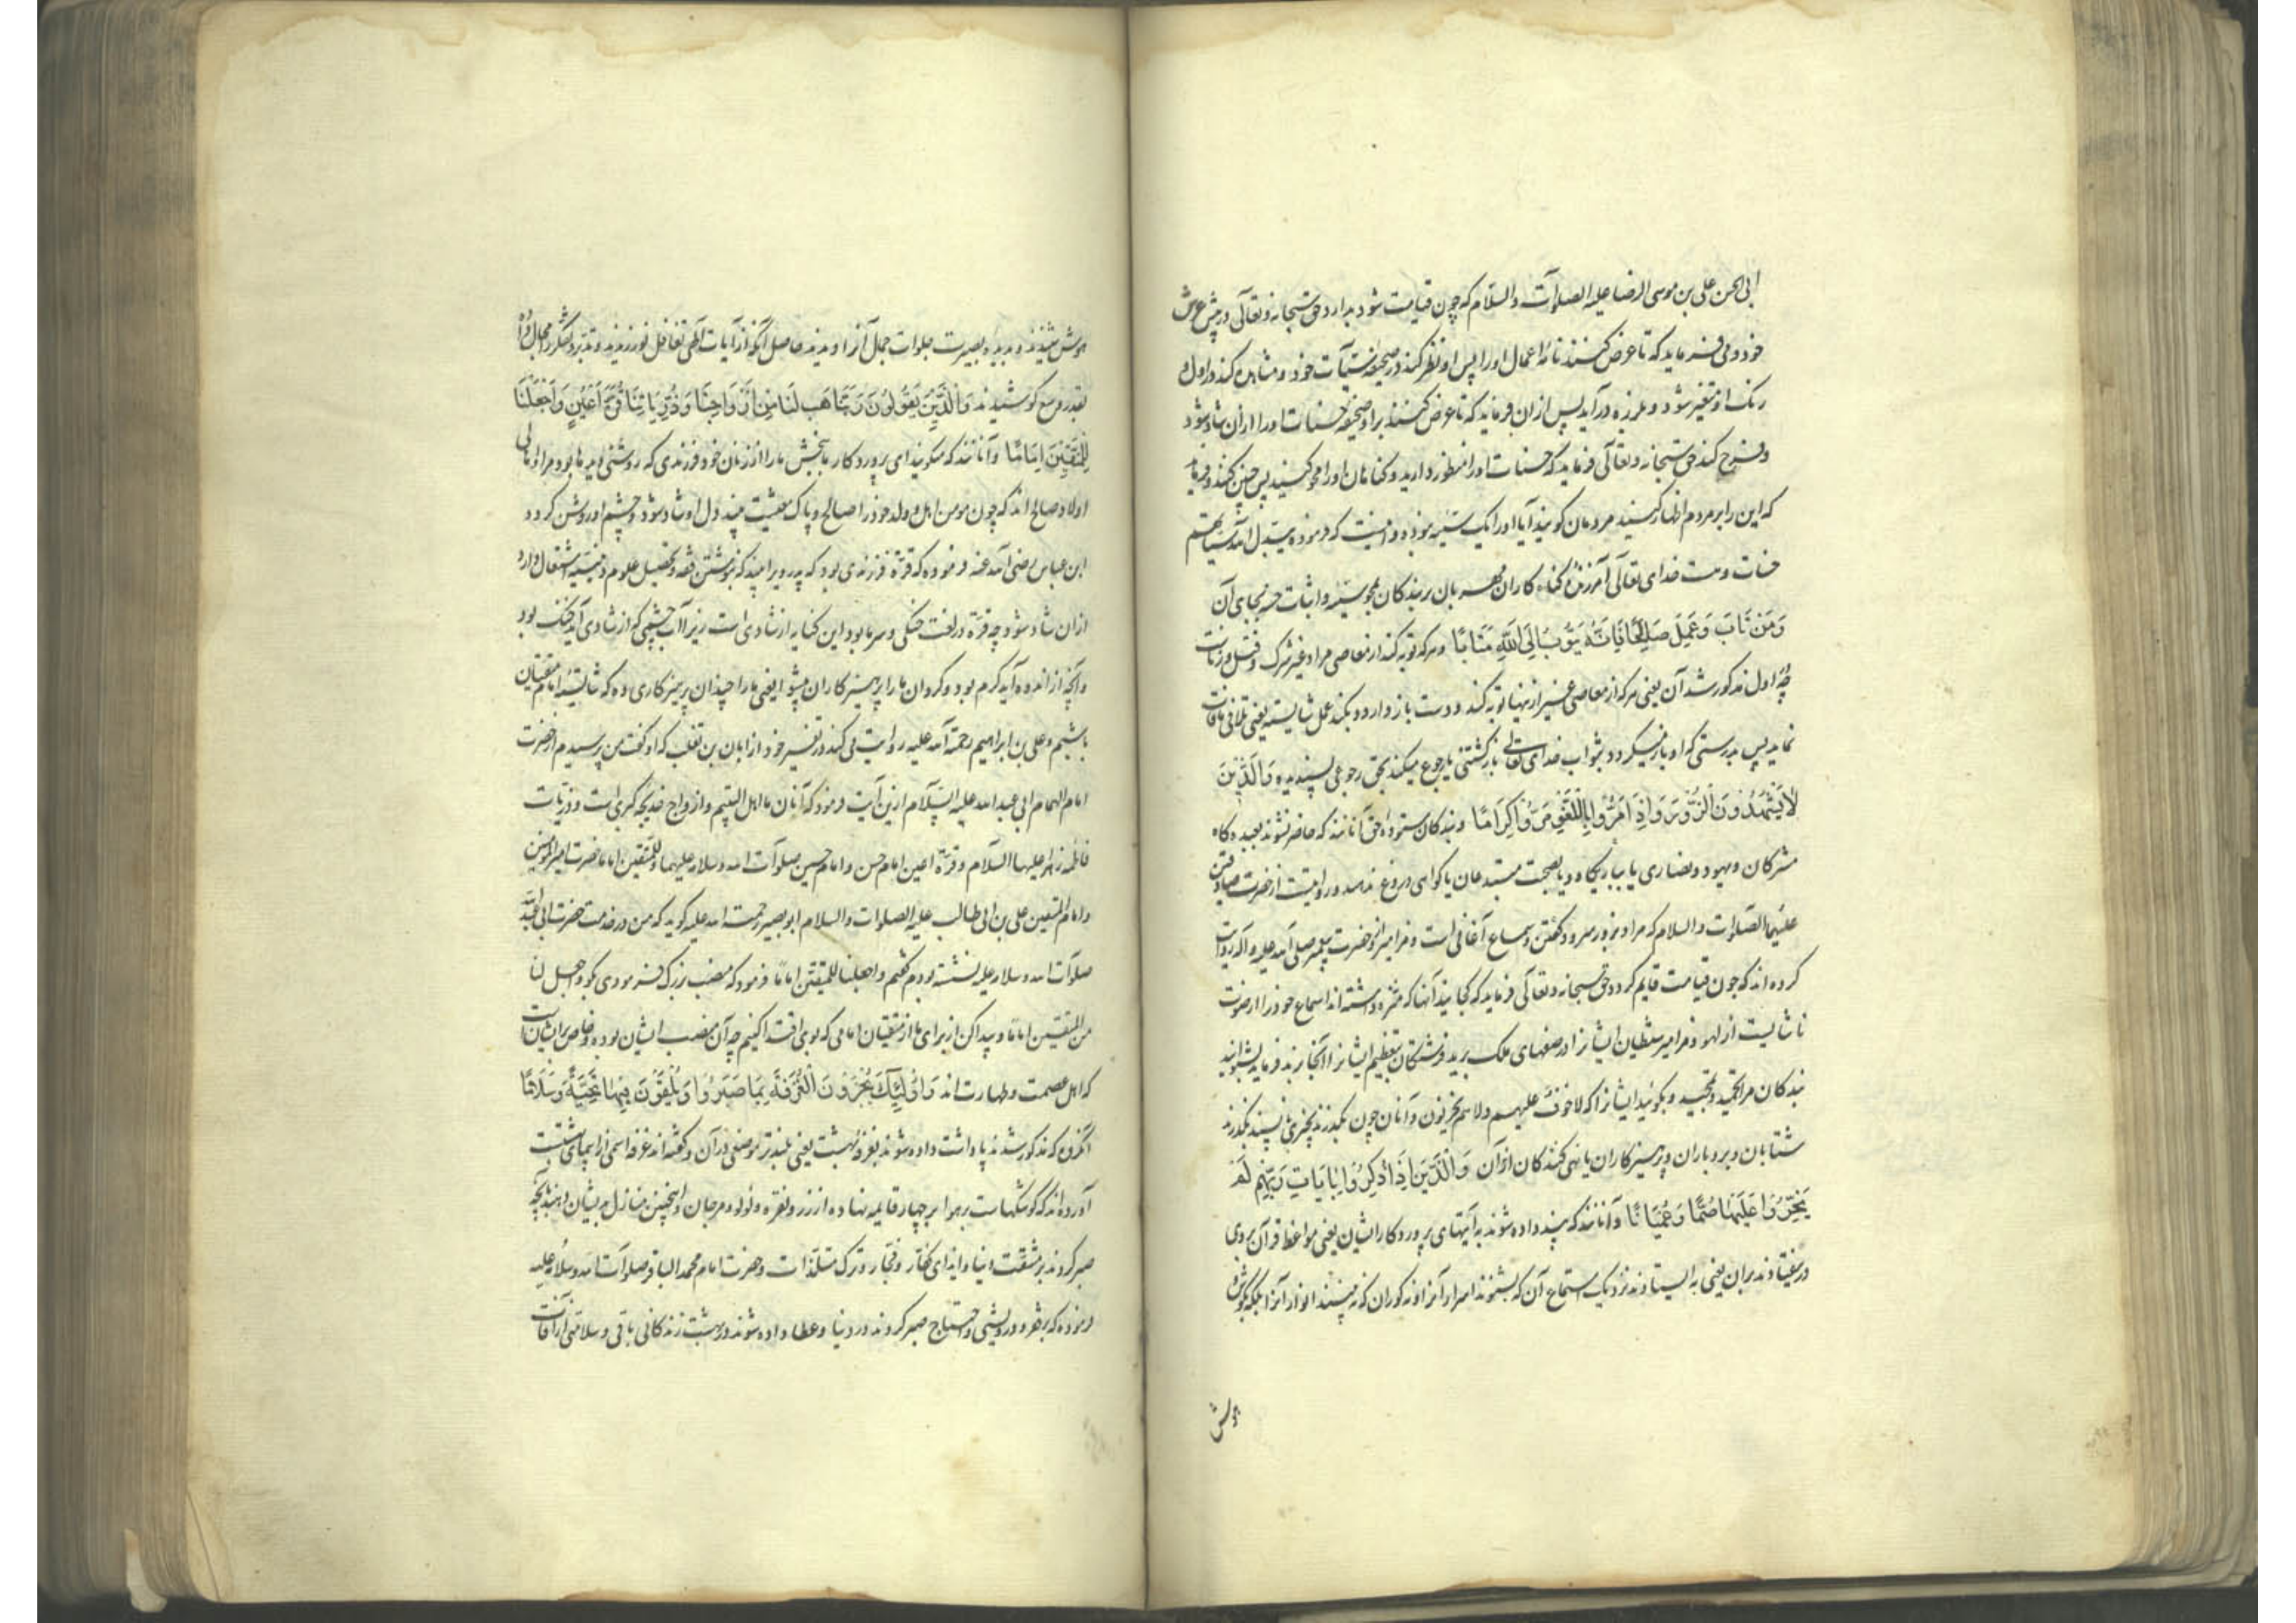 ابی الحسن علی بن موسی الرضا علیه الصلوات والسلام که چون قیامت شود بدارد حق سبحانه وتعالی در پیش عرش
خود و می فرماید که تا عرض کنند نامه اعمال او را پس او نظر کند در صحیفه سیئات خود و مشاهده کند در اول
رنک او متغیر شود و بلرزه درآید پس از ان فرماید که تا عرض کنند برا و صحیفه حسنات او را از ان شاد شود
و فرح کند حق سبحانه وتعالی فرماید که حسنات او را منظور دارید و کناهان او را محو کنید پس چنین کنند
که این را بر مردم اظهار کنید مردمان کویند آیا او را یک سیئه نبوده و اینست که فرموده یبدل الله سیئاتهم
حسنات و هست خدای تعالی آمرزنده کناه کاران مهربان بر بندکان بمحو سیئه و اثبات حسنه بجای آن
وَمَنْ تَابَ وَعَمِلَ صَالِحًا فَاِنَّهُ يَتُوبُ اِلَى اللّٰهِ مَتَابًا و هرکه توبه کند از معاصی مراد غیر شرک و قتل و زناست
چه اول مذکور شد آن یعنی هرکه از معاصی غیر از ینها توبه کند و دست باز دارد و بکند عمل شایسته یعنی تلافی مافات
نماید پس بدرستی که او باز میکردد بثواب خدای تعالی بازکشتنی یا رجوع میکند بحق رجوعی پسندیده وَالَّذِينَ
لَا يَشْهَدُونَ الزُّورَ وَاِذَا مَرُّوا بِاللَّغْوِ مَرُّوا كِرَامًا و بندکان ستوده حق آنانند که حاضر نشوند بعیدکاه
مشرکان و یهود و نصاری یا ببازیکاه و یا بصحبت مبتدعان یا کواهی دروغ ندهند و روایت از حضرت صادقین
علیهما الصلوات والسلام که مراد بزور سرود کفتن و سماع آغانی است و مزامیر و از حضرت پیغمبر صلی الله علیه وآله روایت
کرده اند که چون قیامت قایم کردد حق سبحانه وتعالی فرماید که کجایند آنها که منزه داشته اند اسماع خود را از صوت
ناشایست از لهو و مزامیر شیطان ایشانرا در صفهای ملک برید فرشتکان بتعظیم ایشانرا آنجا برند فرماید بشنوانید
بندکان مرا تحمید و تمجید و بکوئید ایشانرا که لا خوف علیهم ولا هم یحزنون و آنان چون بکذرند بچیزی ناپسند بکذرند
شتابان و بردباران و پرهیزکاران یا نهی کنندکان از آن وَالَّذِينَ اِذَا ذُكِّرُوا بِايَاتِ رَبِّهِمْ لَمْ
يَخِرُّوا عَلَيْهَا صُمًّا وَعُمْيَانًا و آنانند که پند داده شوند به آیتهای پروردکار ایشان یعنی مواعظ قرآن بروی
در نیفتادند بران یعنی نه ایستادند نزدیک استماع آن که نشنوند اسرار آنرا و نه کوران که نه بینند انوار آنرا بلکه بکوش
هوش
هوش شنیدند و بدیده بصیرت جلوات جمال آنرا دیدند حاصل آنکه از آیات الهی تغافل نورزیدند و تدبر و تفکر
بقدر وسع کوشیدند وَالَّذِينَ يَقُولُونَ رَبَّنَا هَبْ لَنَا مِنْ اَزْوَاجِنَا وَذُرِّيَّاتِنَا قُرَّةَ اَعْيُنٍ وَاجْعَلْنَا
لِلْمُتَّقِينَ اِمَامًا و آنانند که میکویند ای پروردکار ما ببخش ما را از زنان خود فرزندی که روشنی دیده ما بود مراد
اولاد صالح اند که چون مومن اهل و ولد خود را صالح و پاک عقیدت بیند دل او شاد شود و چشم او روشن کردد
ابن عباس رضی الله عنه فرموده که قرة فرزندی بود که پدر ویرا بیند که بنوشتن فقه و تحصیل علوم دینیه اشتغال دارد
ازان شاد شود چه قرة در لغت خنکی و سرما بود این کنایه از شادی است زیرا آب چشمی که از شادی آید خنک بود
و آنچه از اندوه آید کرم بود و کردان ما را پرهیزکاران پیشوا یعنی ما را چندان پرهیزکاری ده که شایسته امامت متقیان
باشیم و علی بن ابراهیم رحمة الله علیه روایت می کند در تفسیر خود از ابان بن تغلب که او کفت من پرسیدم از حضرت
امام الهمام ابی عبدالله علیه السلام از ین آیت فرمود که آنان ما اهل البیتیم و ازواج خدیجه کبری است و ذریات
فاطمه زهرا علیها السلام و قرة اعین امام حسن و امام حسین صلوات الله وسلامه علیهما و للمتقین اماما حضرت امیرالمومنین
و امام المتقین علی بن ابی طالب علیه الصلوات والسلام ابو بصیر رحمت الله علیه کوید که من در خدمت حضرت ابی عبدالله
صلوات الله وسلامه علیه نشسته بودم کفتم واجعلنا للمتقین اماما فرمود که منصب بزرک فرمودی بکو واجعل لنا
من المتقین اماما و پیدا کن از برای ما از متقیان امامی که بوی اقتدا کنیم چه آن منصب ایشان بوده و خاص برای ایشانست
که اهل عصمت و طهارت اند وَاُولٰئِكَ يُجْزَوْنَ الْغُرْفَةَ بِمَا صَبَرُوا وَيُلَقَّوْنَ فِيهَا تَحِيَّةً وَسَلَامًا
آنکروه که مذکور شدند پاداشت داده شوند بغرفه بهشت یعنی بلندتر موضعی در آن و کفته اند غرفه اسمی از اسمای بهشتست
آورده اند که کوشکهاست بر هوا بر چهار قایمه نهاده از زر و نقره و لولو و مرجان و اینچنین منازل بدیشان دهند بآنچه
صبر کردند بر مشقت دنیا و ایذای کفار و فجار و ترک مستلذات و حضرت امام محمد الباقر صلوات الله وسلامه علیه
فرموده که بر فقر و درویشی و احتیاج صبر کردند در دنیا و عطا داده شوند در بهشت زندکانی باقی و سلامتی از آفات